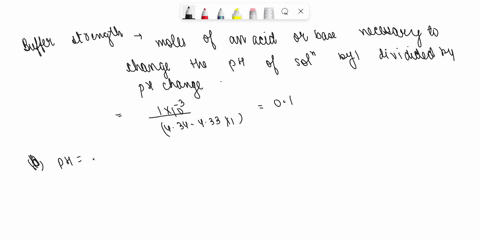 Buffer strength → moles of an acid or base necessary to
change the pH of solⁿ by 1 divided by
pH change .
= 1×10⁻³ / (4.34 - 4.33 ×1) = 0.1
(b) pH = .